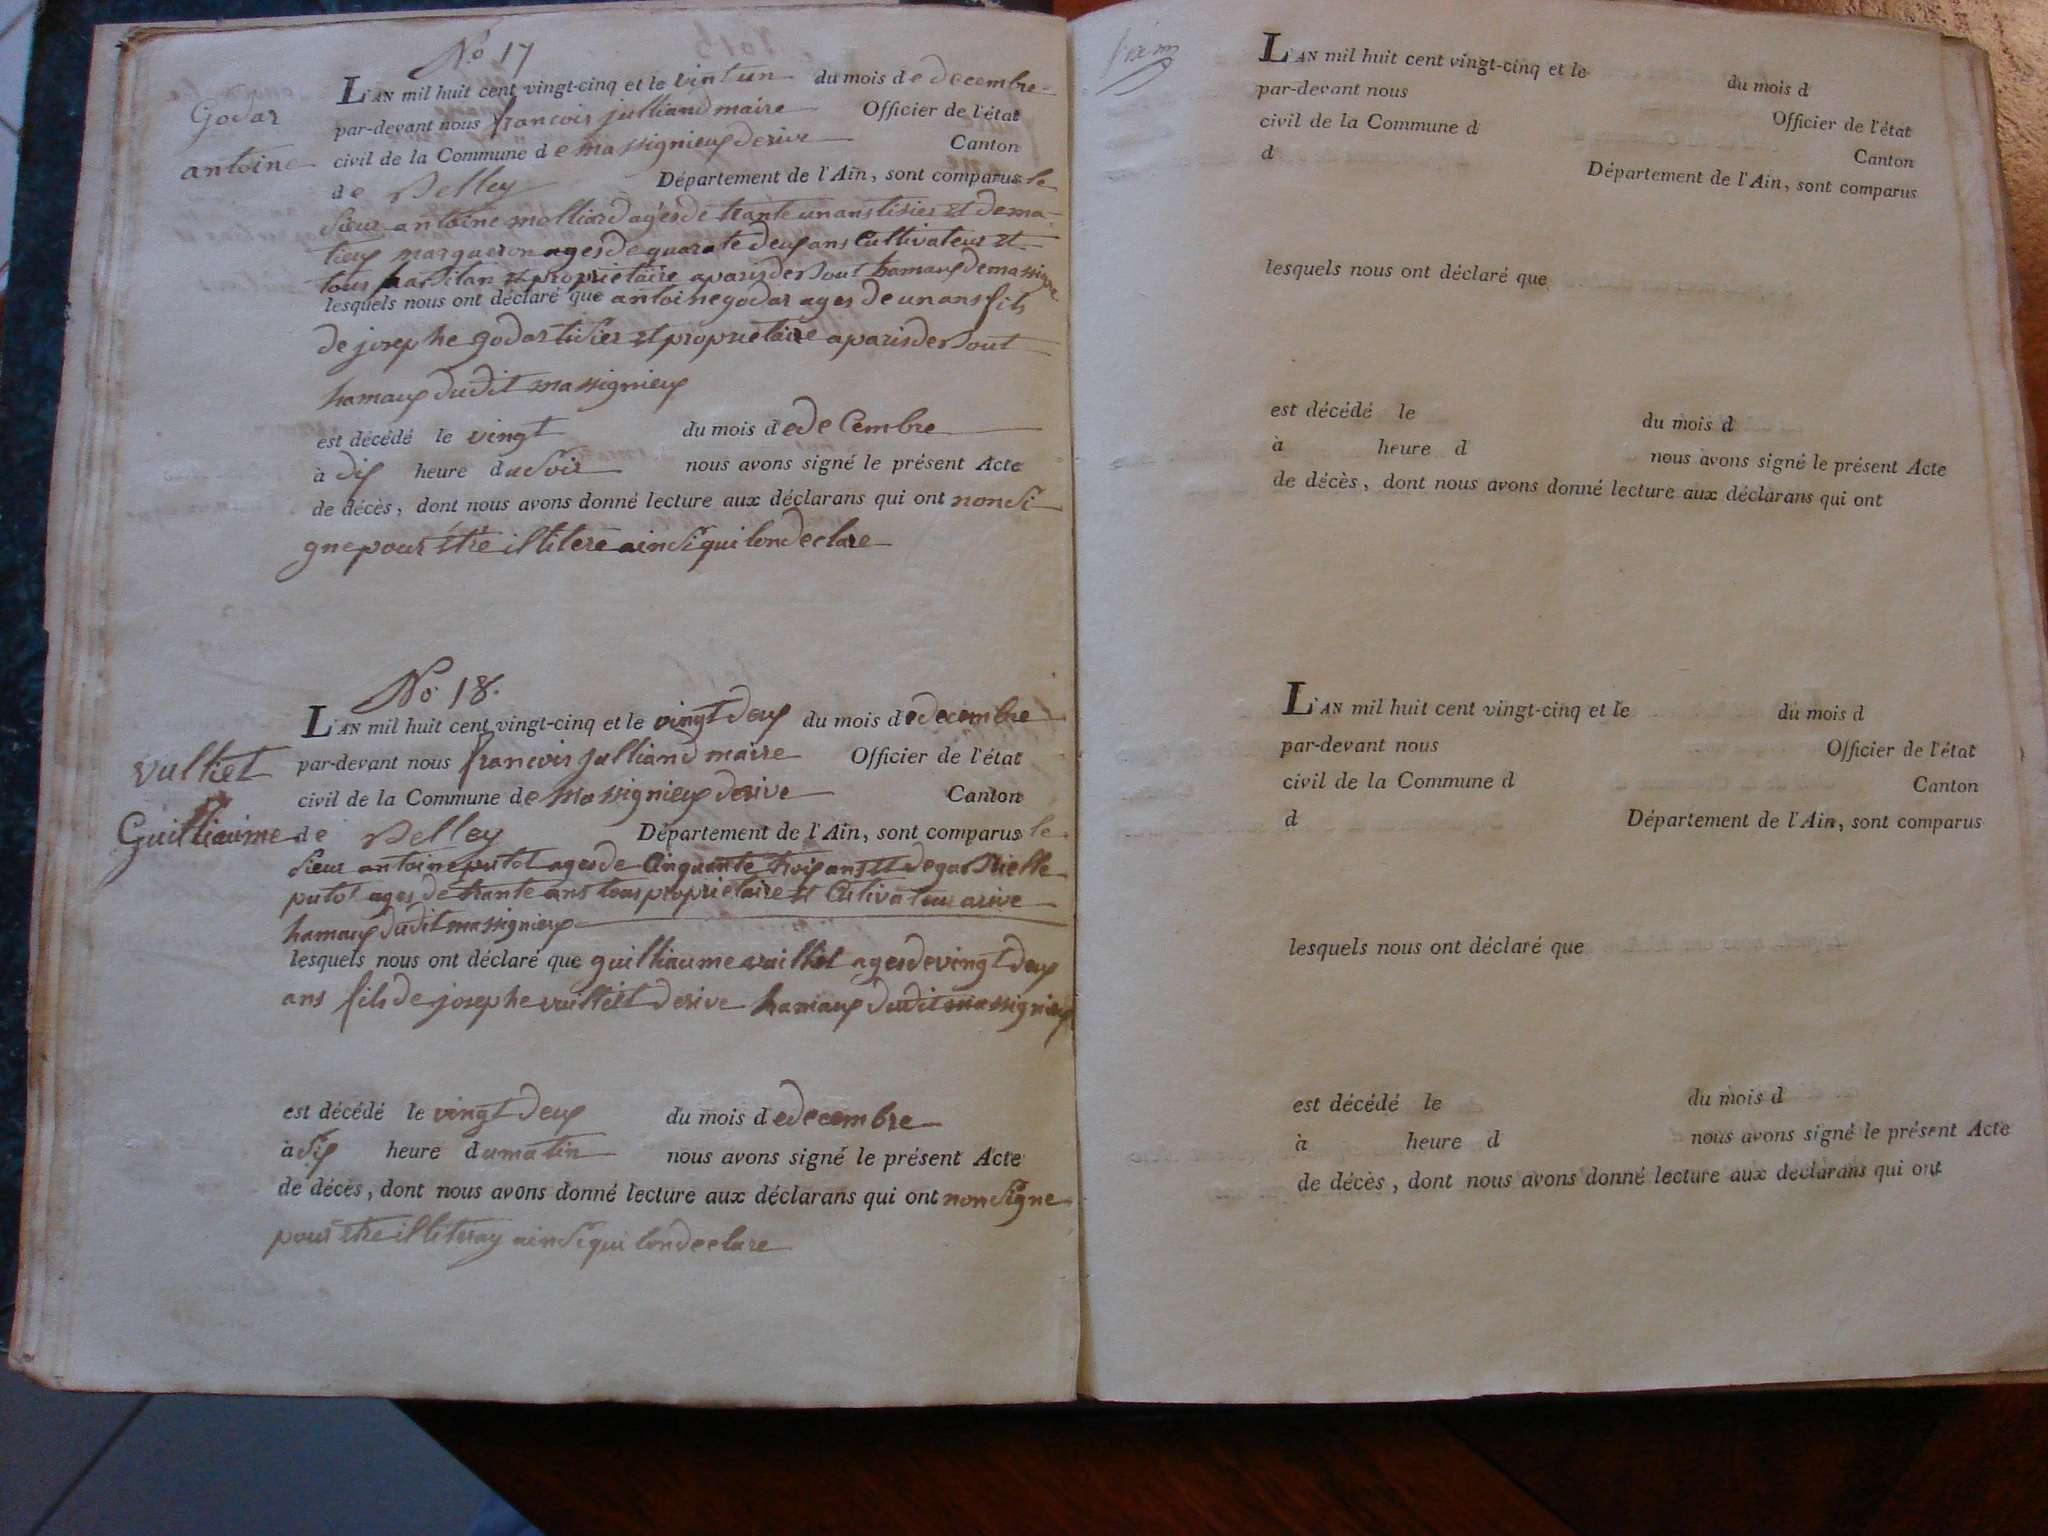 No 17
Godar
antoine
L'AN mil huit cent vingt-cinq et le vintun du mois de decembre
par-devant nous francois julliand maire Officier de l'état
civil de la Commune de massignieux derive Canton
de Belley Département de l'Ain, sont comparus le
sieur antoine molliard ages de trante un ans tisier et de ma-
tieux marqueron ages de quarate deux ans Cultivateur et
tous habitan et proprietaire a parisdersout hamaux de massigneux
lesquels nous ont déclaré que antoine godar ages de un ans fils
de josephe godar tisier et proprietaire a parisdersout
hamaux dudit massignieux
est décédé le vingt du mois de deCembre
à dix heure du soir nous avons signé le présent Acte
de décès, dont nous avons donné lecture aux déclarans qui ont non si-
gne pour être illitere ainsi qui lon declare
No 18.
vulliet
Guilliaume
L'AN mil huit cent vingt-cinq et le vingt deux du mois de decembre
par-devant nous francois julliand maire Officier de l'état
civil de la Commune de Massignieux derive Canton
de Belley Département de l'Ain, sont comparus le
sieur antoine putot ages de Cinquante troix ans et de gabrielle
putot ages de trante ans tous proprietaire et Cultivateur arive
hamaux dudit massignieux
lesquels nous ont déclaré que guilliaume vulliet ages de vingt deux
ans fils de josephe vuilliet derive hamaux dudit massignieux
est décédé le vingt deux du mois de decembre
à six heure du matin nous avons signé le présent Acte
de décès, dont nous avons donné lecture aux déclarans qui ont non signe
pour être illiteray ainsi qui lon declare
L'AN mil huit cent vingt-cinq et le du mois d
par-devant nous Officier de l'état
civil de la Commune d Canton
d Département de l'Ain, sont comparus
lesquels nous ont déclaré que
est décédé le du mois d
à heure d nous avons signé le présent Acte
de décès, dont nous avons donné lecture aux déclarans qui ont
L'AN mil huit cent vingt-cinq et le du mois d
par-devant nous Officier de l'état
civil de la Commune d Canton
d Département de l'Ain, sont comparus
lesquels nous ont déclaré que
est décédé le du mois d
à heure d nous avons signé le présent Acte
de décès, dont nous avons donné lecture aux déclarans qui ont